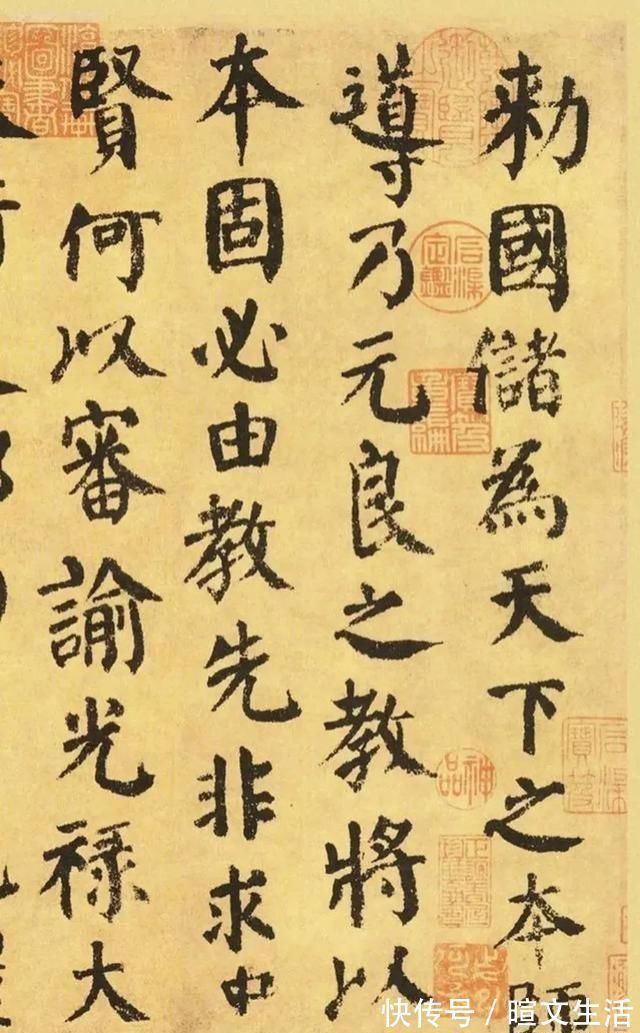 勅國儲為天下之本師
導乃元良之教將以
本固必由教先非求中
賢何以審諭光祿大
神品
快传号／暄文生活